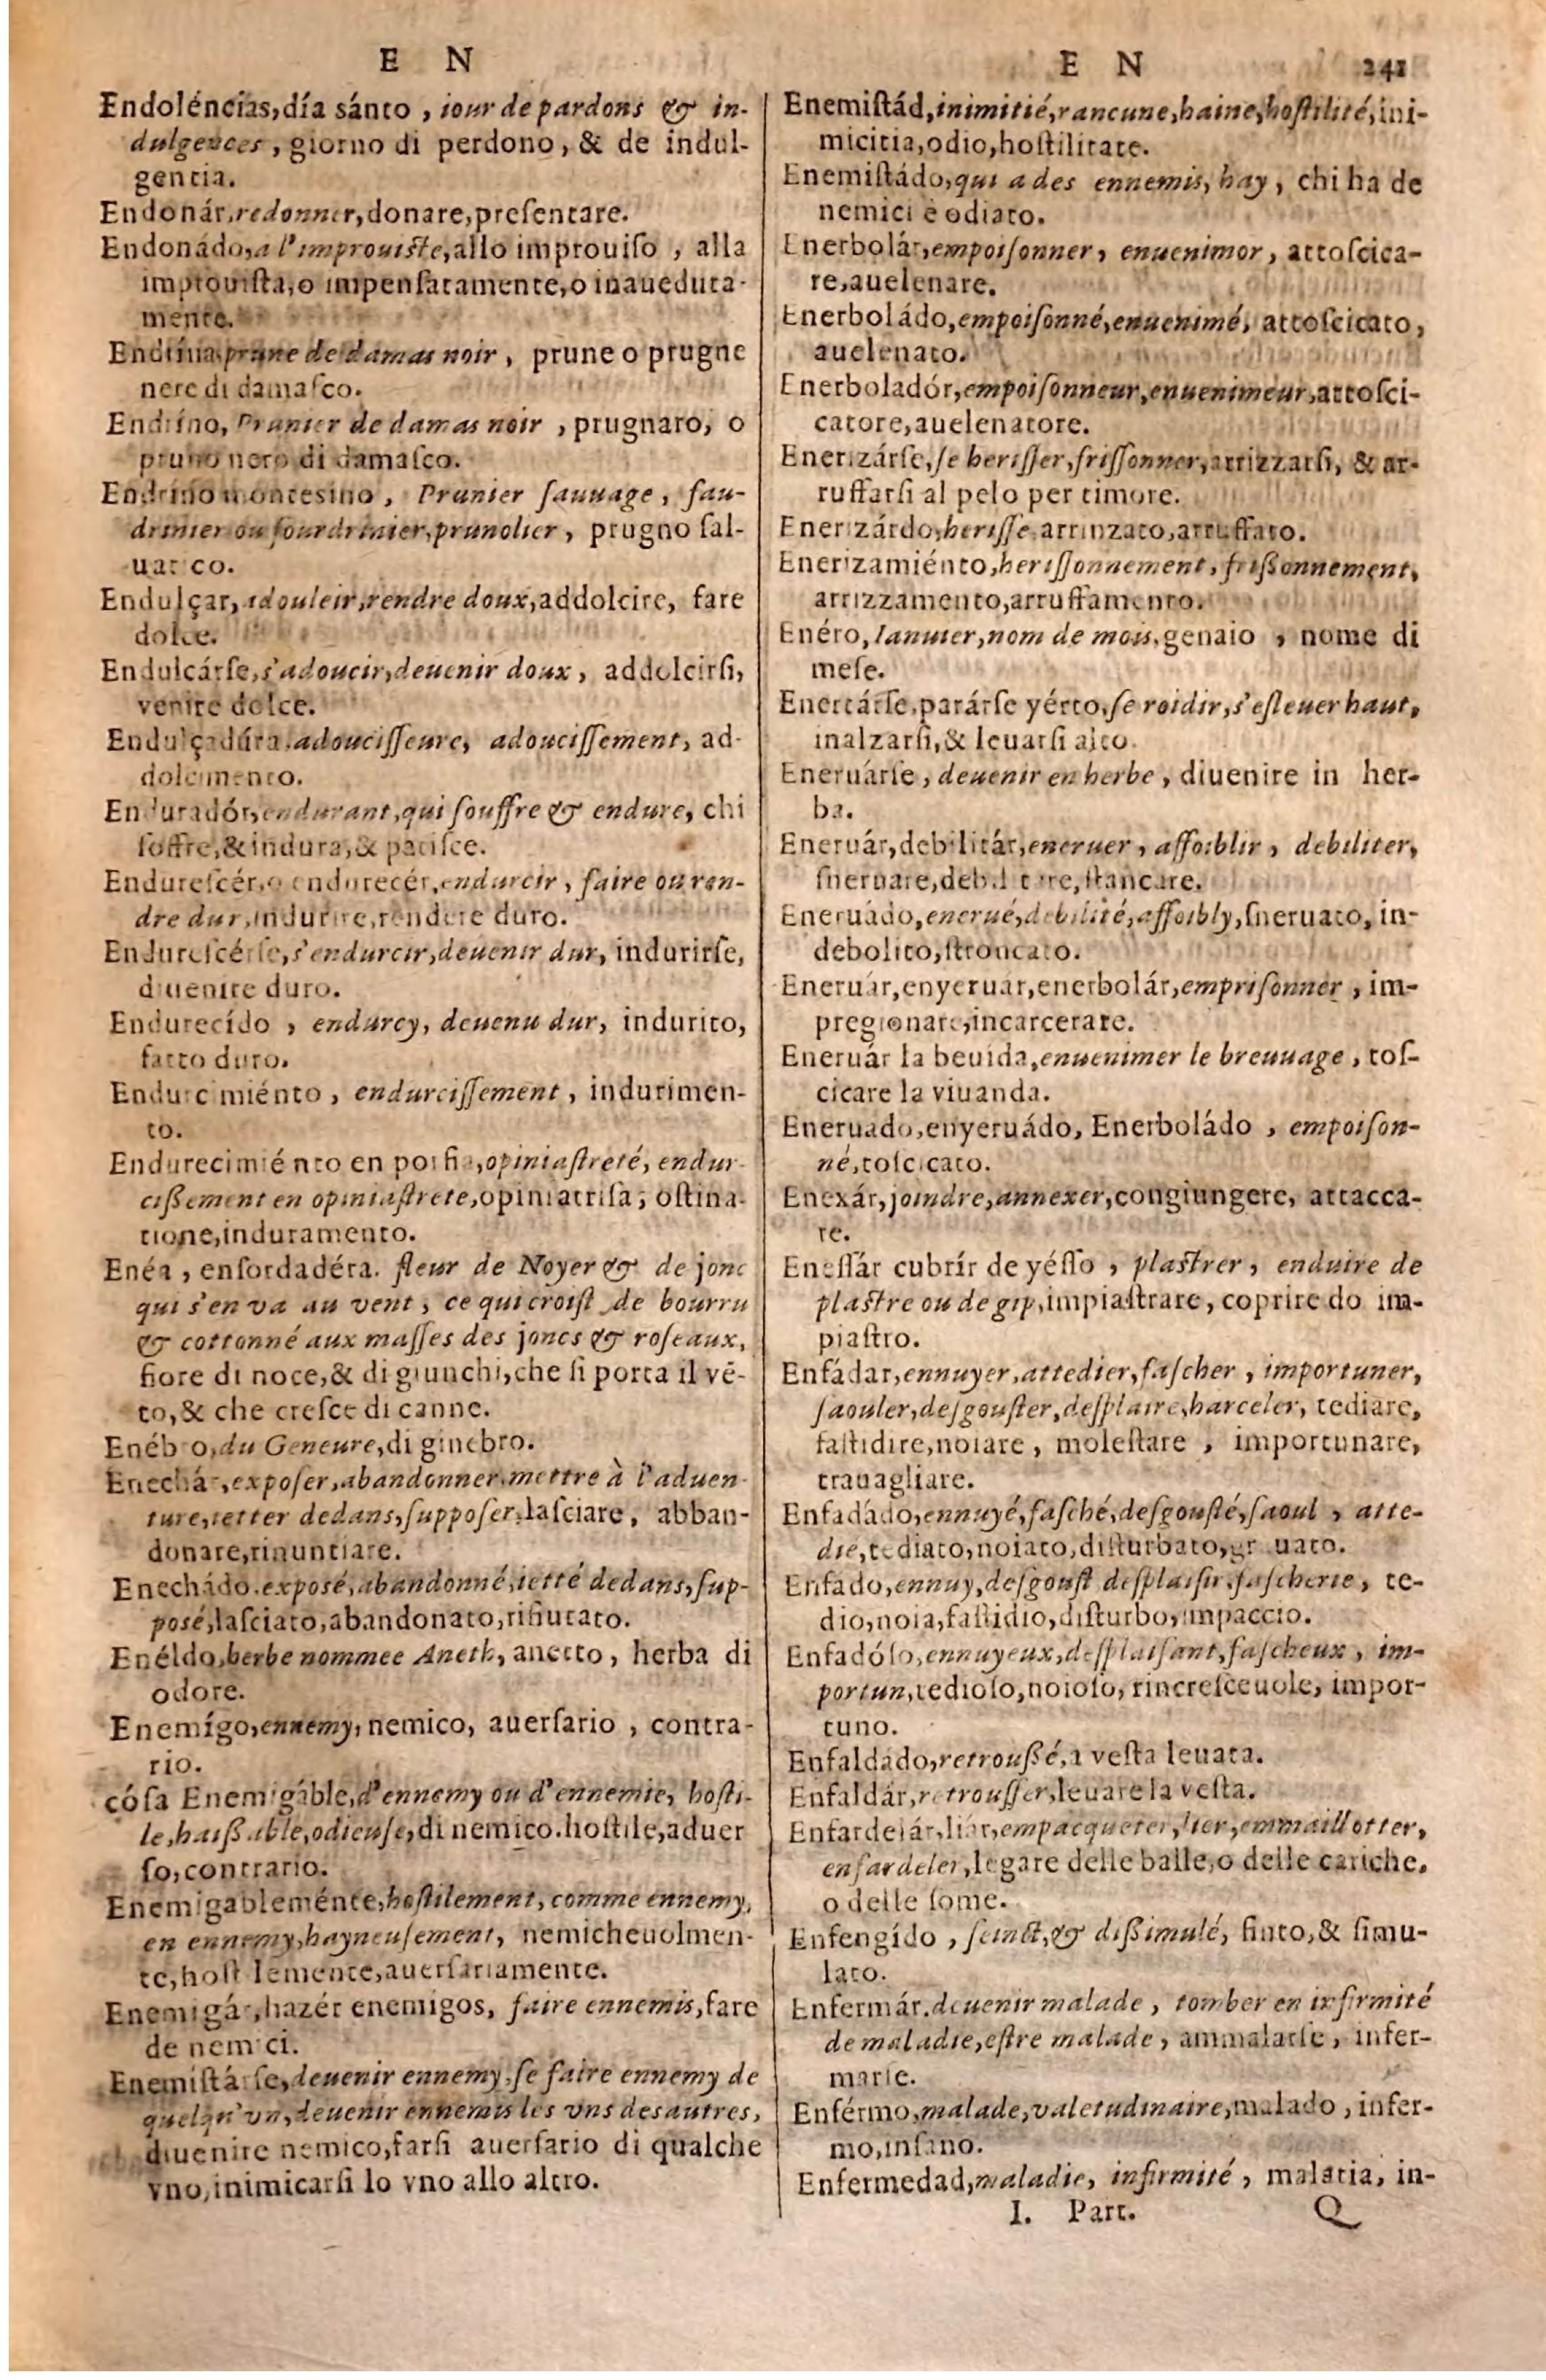 E N
Endoléncias,día sánto , iour de pardons & in-
dulgences , giorno di perdono, & de indul-
gentia.
Endonár,redonner,donare,preſentare.
Endonádo,a l'improuiſte,allo improuiſo , alla
improuiſta,o impenſatamente,o inaueduta-
mente.
Endrína,prune de damas noir , prune o prugne
nere di damaſco.
Endríno, Prunier de damas noir , prugnaro, o
pruno nero di damaſco.
Endrino montesino , Prunier ſauuage , ſau-
drinier ou ſourdrinier,prunolier , prugno ſal-
uatico.
Endulçar, adouleir,rendre doux,addolcire, fare
dolce.
Endulcárſe,s'adoucir,deuenir doux , addolcirſi,
venire dolce.
Endulçadúra.adouciſſeure, adouciſſement, ad-
dolcimento.
Enduradór,endurant,qui ſouffre & endure, chi
ſoffre,&indura,& patiſce.
Endureſcér,o endurecér,endurcir, faire ou ren-
dre dur,indurire,rendere duro.
Endureſcérſe,s'endurcir,deuenir dur, indurirſe,
diuenire duro.
Endurecído , endurcy, deuenu dur, indurito,
fatto duro.
Endurcimiénto , endurciſſement , indurimen-
to.
Endurecimiénto en porfia,opiniaſtreté, endur-
cißement en opiniaſtrete,opiniatriſa, oſtina-
tione,induramento.
Enéa , enſordadéra. fleur de Noyer & de jonc
qui s'en va au vent, ce qui croiſt de bourru
& cottonné aux maſſes des joncs & roſeaux,
fiore di noce,& di giunchi,che ſi porta il vē-
to,& che creſce di canne.
Enébro,du Geneure,di ginebro.
Enechár,expoſer,abandonner.mettre à l'aduen-
ture,ietter dedans,ſuppoſer,laſciare, abban-
donare,rinuntiare.
Enechádo.exposé,abandonné,ietté dedans,ſup-
posé,laſciato,abandonato,rifiutato.
Enéldo,herbe nommee Aneth, anetto, herba di
odore.
Enemígo,ennemy, nemico, auerſario , contra-
rio.
cóſa Enemigáble,d'ennemy ou d'ennemie, hoſti-
le,haißable,odieuſe,di nemico.hoſtile,aduer
ſo,contrario.
Enemigableménte,hoſtilement, comme ennemy,
en ennemy,hayneuſement, nemicheuolmen-
te,hoſtilemente,auerſariamente.
Enemigár,hazér enemigos, faire ennemis,fare
de nemici.
Enemiſtárſe,deuenir ennemy,ſe faire ennemy de
quelqu'vn,deuenir ennemis les vns des autres,
diuenire nemico,farſi auerſario di qualche
vno,inimicarſi lo vno allo altro.
E N 241
Enemiſtád,inimitié,rancune,haine,hoſtilité,ini-
micitia,odio,hoſtilitate.
Enemiſtádo,qui a des ennemis, hay , chi ha de
nemici è odiato.
Enerbolár,empoiſonner, enuenimor, attoſcica-
re,auelenare.
Enerboládo,empoiſonné,enuenimé, attoſcicato,
auelenato.
Enerboladór,empoiſonneur,enuenimeur,attoſci-
catore,auelenatore.
Enerizárſe,ſe heriſſer,friſſonner,arrizzarſi, & ar-
ruffarſi al pelo per timore.
Enerizárdo,heriſſe.arrinzato,arruffato.
Enerizamiénto,heriſſonnement, frißonnement,
arrizzamento,arruffamento.
Enéro,Ianuier,nom de mois,genaio , nome di
meſe.
Enertárſe,parárſe yérto,ſe roidir,s'eſleuer haut,
inalzarſi,& leuarſi alto.
Eneruárſe , deuenir en herbe , diuenire in her-
ba.
Eneruár,debilitár,eneruer , aſſoiblir , debiliter,
ſneruare,debilitare,ſtancare.
Eneruádo,enerué,debilité,aſſoibly,ſneruato, in-
debolito,ſtroncato.
Eneruár,enyeruár,enerbolár,empriſonner , im-
pregionare,incarcerare.
Eneruár la beuida,enuenimer le breuuage , toſ-
cicare la viuanda.
Eneruado,enyeruádo, Enerboládo , empoiſon-
né,toſcicato.
Enexár,joindre,annexer,congiungere, attacca-
re.
Eneſſár cubrír de yéſſo , plaſtrer , enduire de
plaſtre ou de gip,impiaſtrare, coprire do im-
piaſtro.
Enfádar,ennuyer,attedier,faſcher , importuner,
ſaouler,deſgouſter,deſplaire,harceler, tediare,
faſtidire,noiare , moleſtare , importunare,
trauagliare.
Enfadádo,ennuyé,faſché,deſgouſté,ſaoul , atte-
die,tediato,noiato,diſturbato,gr uato.
Enfado,ennuy,deſgouſt deſplaiſir.faſcherie, te-
dio,noia,faſtidio,diſturbo,impaccio.
Enfadóſo,ennuyeux,deſplaiſant,faſcheux , im-
portun,tedioſo,noioſo, rincreſceuole, impor-
tuno.
Enfaldádo,retroußé,a veſta leuata.
Enfaldár,retrouſſer,leuare la veſta.
Enfardelár,liár,empacqueter,lier,emmaillotter,
enfardeler,legare delle balle,o delle cariche,
o delle ſome.
Enfengído , feinct,& dißimulé, finto,& ſimu-
lato.
Enfermár.deuenir malade , tomber en infirmité
de maladie,eſtre malade , ammalarſe , infer-
marſe.
Enférmo,malade,valetudinaire,malado , infer-
mo,inſano.
Enfermedad,maladie, infirmité , malatia, in-
I. Part. Q